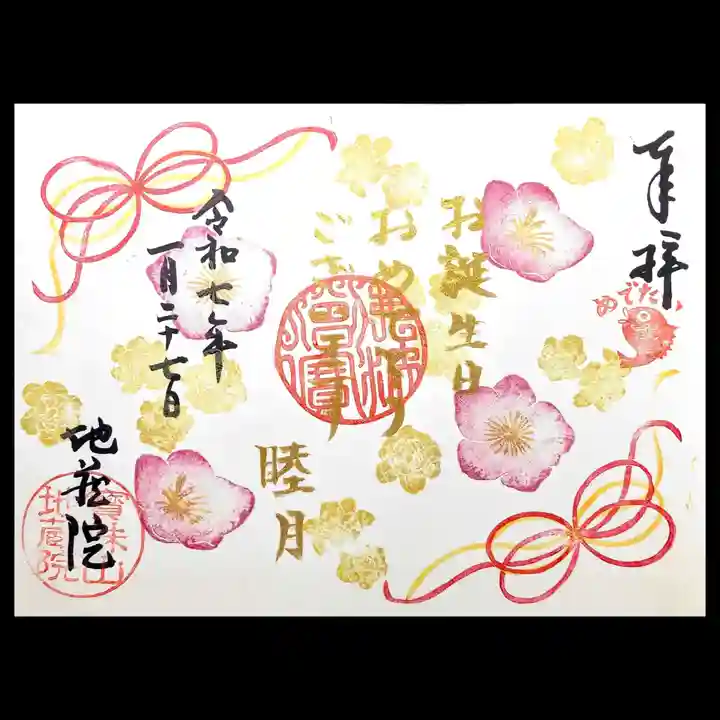 奉拝
めでたい
お誕生日
おめでとう
ございます
睦月
令和七年
一月二十七日
地蔵院
寶珠山
地蔵院